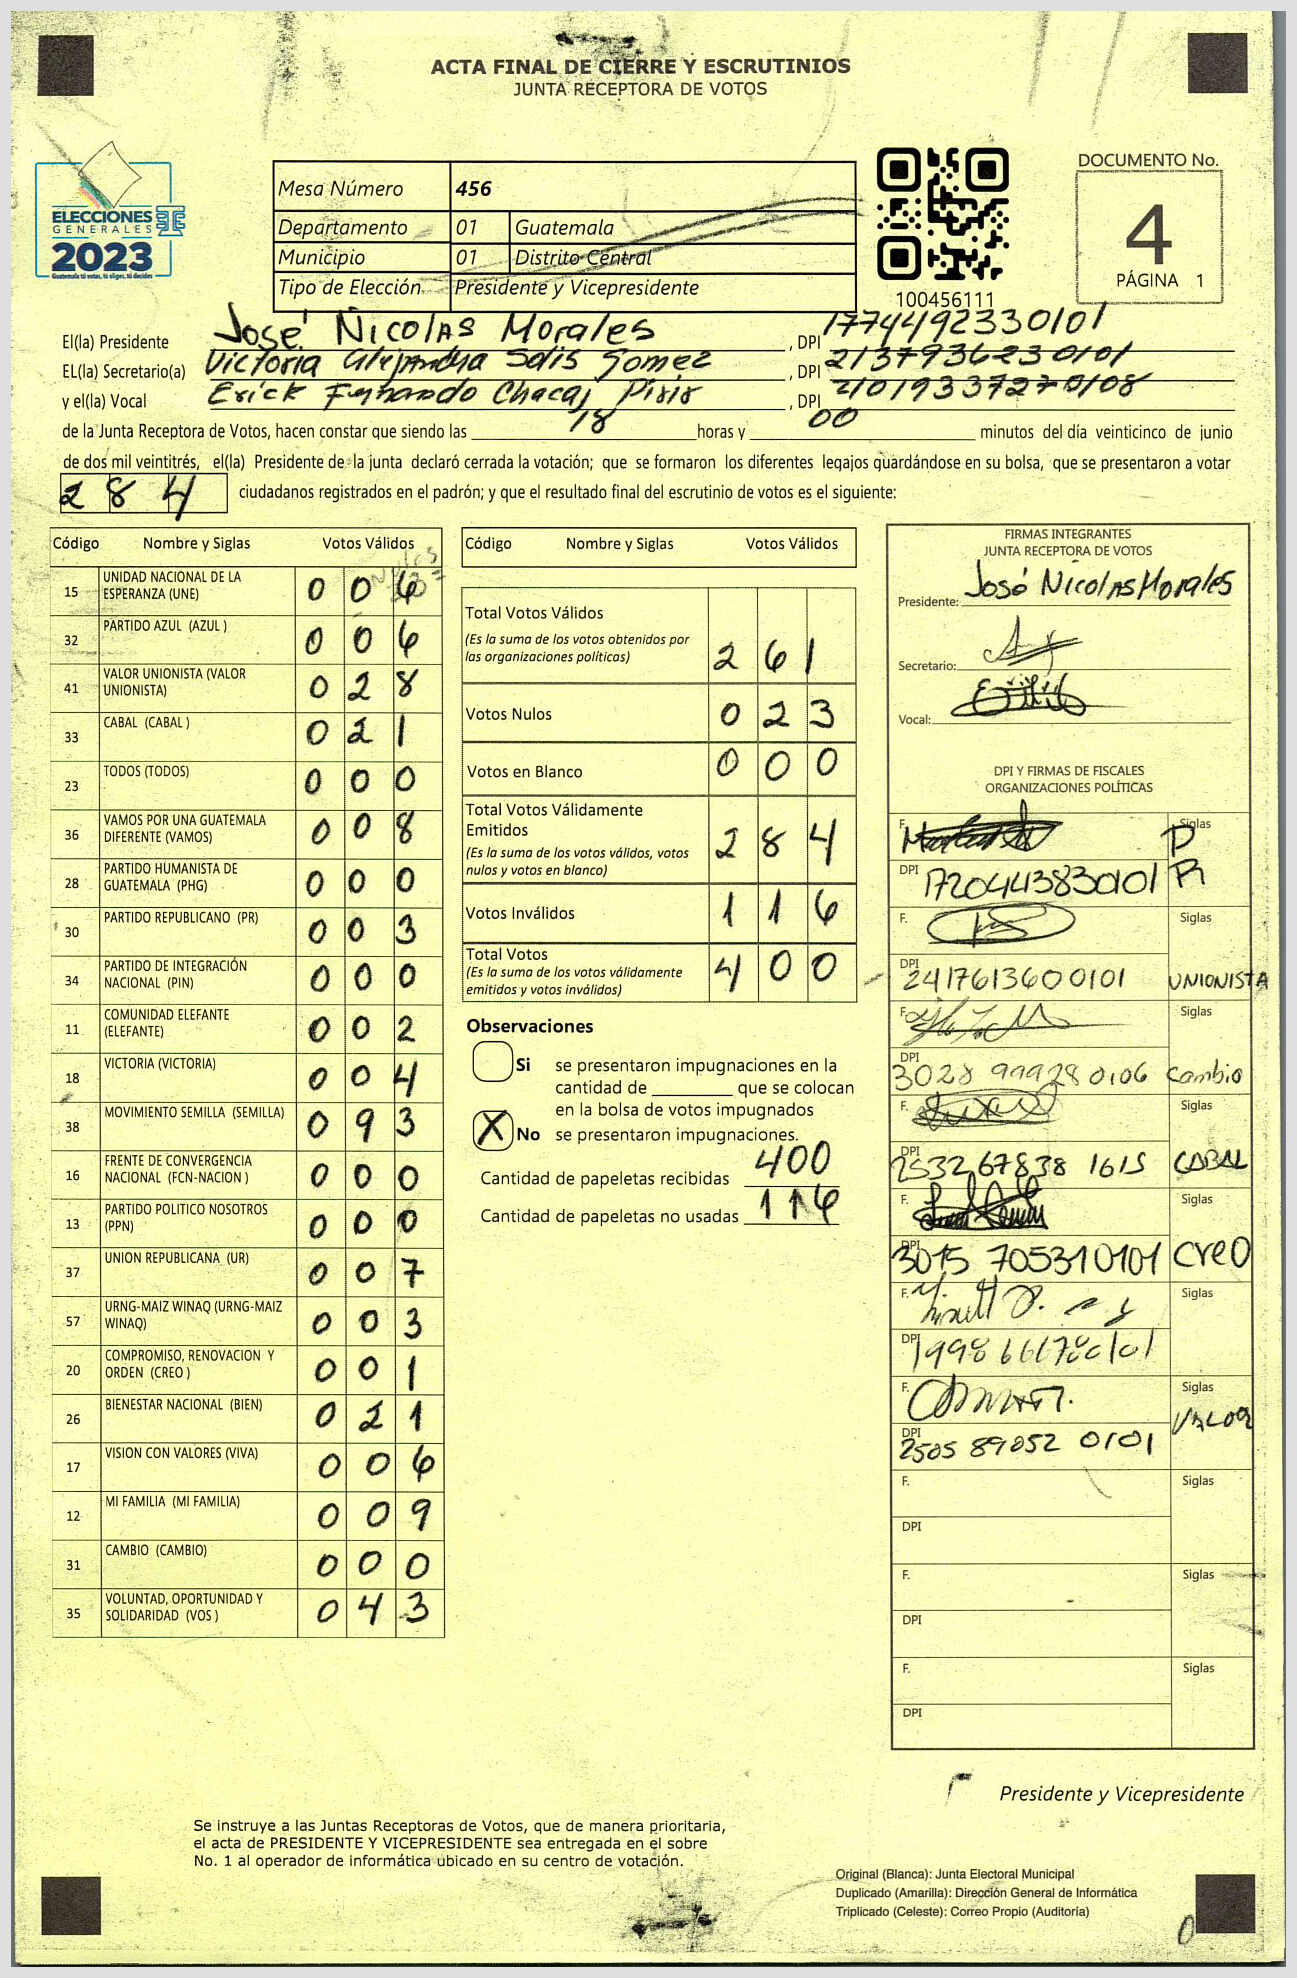 ACTA FINAL DE CIERRE Y ESCRUTINIOS
JUNTA RECEPTORA DE VOTOS
ELECCIONES
GENERALES
2023
Guatemala tú votas, tú eliges, tú decides
Mesa Número 456
Departamento 01 Guatemala
Municipio 01 Distrito Central
Tipo de Elección Presidente y Vicepresidente
100456111
DOCUMENTO No.
4
PÁGINA 1
El(la) Presidente José Nicolas Morales, DPI 1774492330101
EL(la) Secretario(a) Victoria Alejandra Solis Gomez, DPI 2137936230101
y el(la) Vocal Erick Fernando Chacaj Pixir, DPI 21019337270108
de la Junta Receptora de Votos, hacen constar que siendo las 18 horas y 00 minutos del día veinticinco de junio
de dos mil veintitrés, el(la) Presidente de la junta declaró cerrada la votación; que se formaron los diferentes legajos guardándose en su bolsa, que se presentaron a votar
284 ciudadanos registrados en el padrón; y que el resultado final del escrutinio de votos es el siguiente:
Código Nombre y Siglas Votos Válidos
15 UNIDAD NACIONAL DE LA ESPERANZA (UNE) 0 0 6
32 PARTIDO AZUL (AZUL ) 0 0 6
41 VALOR UNIONISTA (VALOR UNIONISTA) 0 2 8
33 CABAL (CABAL ) 0 2 1
23 TODOS (TODOS) 0 0 0
36 VAMOS POR UNA GUATEMALA DIFERENTE (VAMOS) 0 0 8
28 PARTIDO HUMANISTA DE GUATEMALA (PHG) 0 0 0
30 PARTIDO REPUBLICANO (PR) 0 0 3
34 PARTIDO DE INTEGRACIÓN NACIONAL (PIN) 0 0 0
11 COMUNIDAD ELEFANTE (ELEFANTE) 0 0 2
18 VICTORIA (VICTORIA) 0 0 4
38 MOVIMIENTO SEMILLA (SEMILLA) 0 9 3
16 FRENTE DE CONVERGENCIA NACIONAL (FCN-NACION ) 0 0 0
13 PARTIDO POLITICO NOSOTROS (PPN) 0 0 0
37 UNION REPUBLICANA (UR) 0 0 7
57 URNG-MAIZ WINAQ (URNG-MAIZ WINAQ) 0 0 3
20 COMPROMISO, RENOVACION Y ORDEN (CREO ) 0 0 1
26 BIENESTAR NACIONAL (BIEN) 0 2 1
17 VISION CON VALORES (VIVA) 0 0 6
12 MI FAMILIA (MI FAMILIA) 0 0 9
31 CAMBIO (CAMBIO) 0 0 0
35 VOLUNTAD, OPORTUNIDAD Y SOLIDARIDAD (VOS ) 0 4 3
Código Nombre y Siglas Votos Válidos
Total Votos Válidos 2 6 1
(Es la suma de los votos obtenidos por
las organizaciones políticas)
Votos Nulos 0 2 3
Votos en Blanco 0 0 0
Total Votos Válidamente
Emitidos 2 8 4
(Es la suma de los votos válidos, votos
nulos y votos en blanco)
Votos Inválidos 1 1 6
Total Votos 4 0 0
(Es la suma de los votos válidamente
emitidos y votos inválidos)
Observaciones
Si se presentaron impugnaciones en la
cantidad de que se colocan
en la bolsa de votos impugnados
X No se presentaron impugnaciones.
Cantidad de papeletas recibidas 400
Cantidad de papeletas no usadas 116
FIRMAS INTEGRANTES
JUNTA RECEPTORA DE VOTOS
Presidente: José Nicolas Morales
Secretario:
Vocal:
DPI Y FIRMAS DE FISCALES
ORGANIZACIONES POLÍTICAS
F. Siglas PR
DPI 1720443830101
F. Siglas
DPI 2417613600101 UNIONISTA
F. Siglas
DPI 3028 999280106 Cambio
F. Siglas
DPI 2532678381615 CABAL
F. Siglas
DPI 3015 705310101 CREO
F. Siglas
DPI
F. Siglas VALOR
DPI 2505 89052 0101
F. Siglas
DPI
F. Siglas
DPI
F. Siglas
DPI
Presidente y Vicepresidente
Se instruye a las Juntas Receptoras de Votos, que de manera prioritaria,
el acta de PRESIDENTE Y VICEPRESIDENTE sea entregada en el sobre
No. 1 al operador de informática ubicado en su centro de votación.
Original (Blanca): Junta Electoral Municipal
Duplicado (Amarilla): Dirección General de Informática
Triplicado (Celeste): Correo Propio (Auditoría)